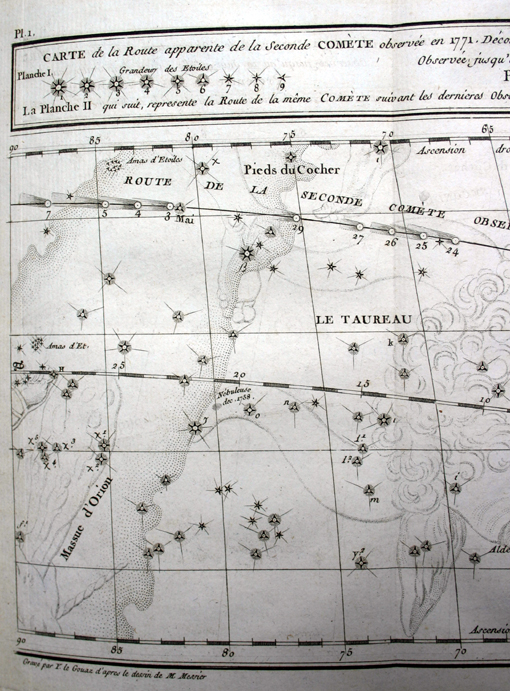 Pl. 1.
CARTE de la Route apparente de la Seconde COMÈTE observée en 1771. Déco
Observée, jusqu'
Planche I. Grandeur des Etoiles
1 2 3 4 5 6 7 8 9
La Planche II qui suit, represente la Route de la même COMÈTE suivant les dernieres Obs
90 85 80 75 70 65
Ascension dro
Amas d'Etoiles
χ
Pieds du Cocher
ι
ROUTE DE LA SECONDE COMÈTE OBSER
7 5 4 3 Mai 29 27 26 25 24
β
LE TAUREAU
k
Amas d'Et.
H 25 20 15 10
Nébuleuse
dec. 1758.
o n ι
ζ
χ² χ³ χ¹
χ⁴ χ²
l¹
l²
m i
Massue d'Orion
f¹
γ² Alde
Ascensio
90 85 80 75 70
Gravé par Y. le Gouaz d'après le dessin de M. Messier